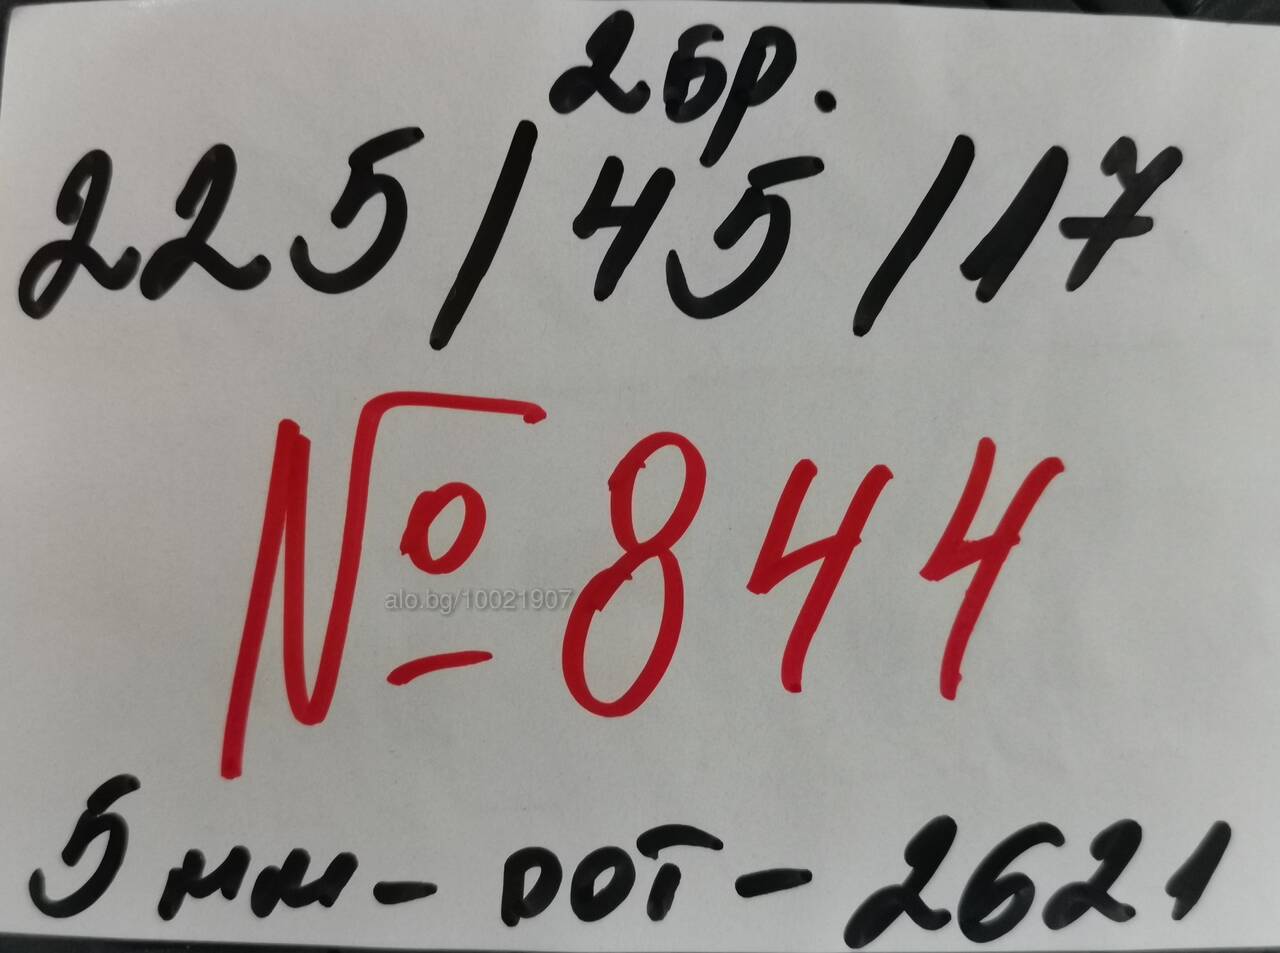 2бр.
225/45/17
№ 844
alo.bg/10021907
5мм- DOT - 2621